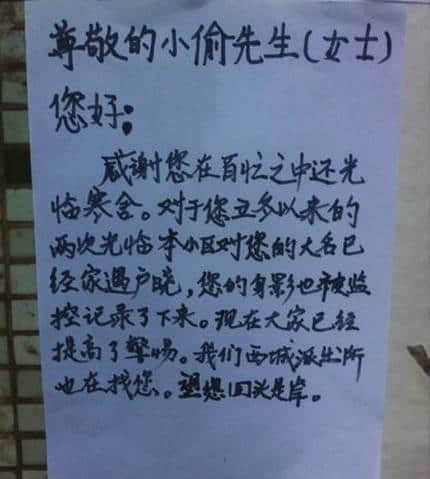 尊敬的小偷先生(女士)
您好:
感谢您在百忙之中还光
临寒舍。对于您立冬以来的
两次光临本小区对您的大名已
经家遇户晓,您的身影也被监
控记录了下来。现在大家已经
提高了警惕。我们西城派出所
也在找您。望您回头是岸。